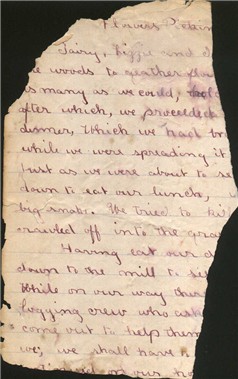 Flowers
Fairy, and I
the woods to gather flow
as many as we could,
after which, we proceeded
dinner, Which we had
while we were spreading it
Just as we were about to se
down to eat our lunch,
big snake. We tried to kil
crawled off into the gras
Having eat our d
down to the mill to
While on our way there
logging crew who aske
come out to help them
we, we shall have
on our